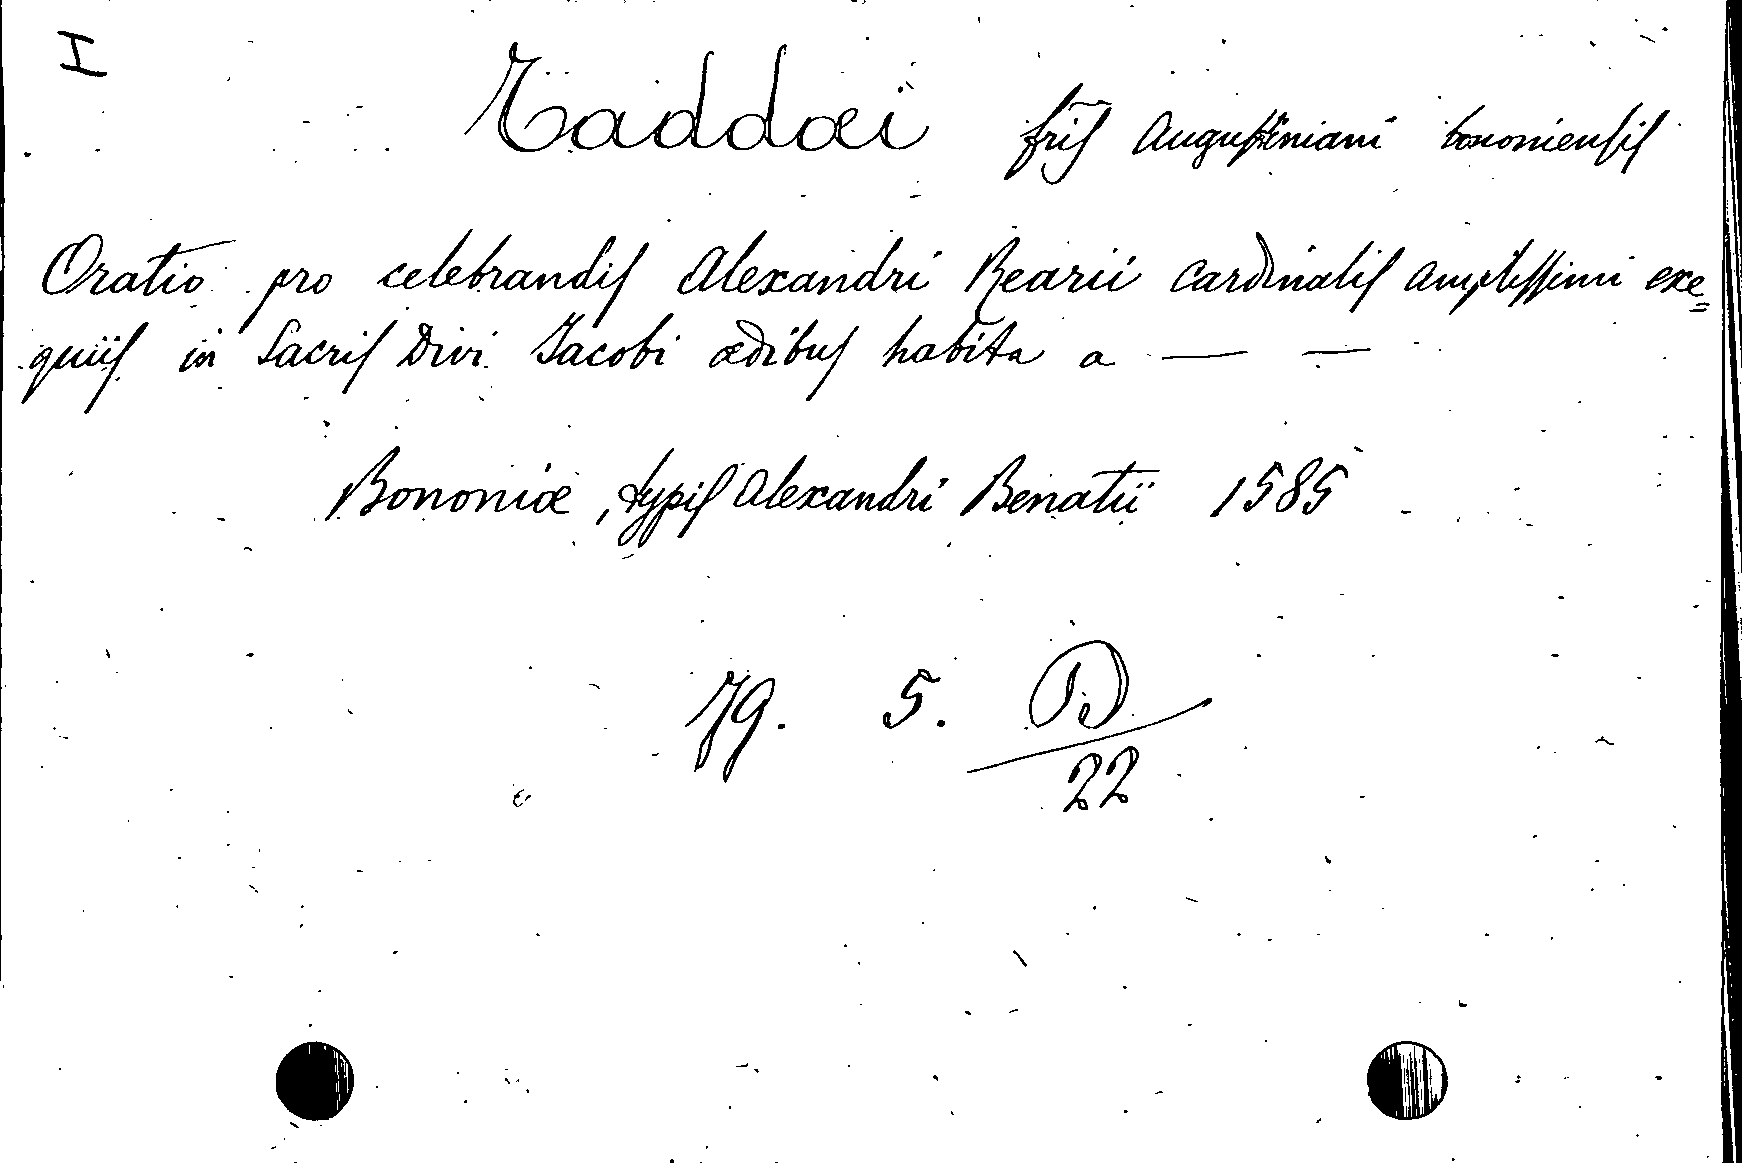 I
Taddæi frĩs Augustiniani bononiensis
Oratio pro celebrandis Alexandri Rearii Cardinalis amplissimi exe=
quiis in Sacris Divi Jacobi ædibus habita a — —
Bononiæ, typis Alexandri Benatii 1585
79. 5. D
22